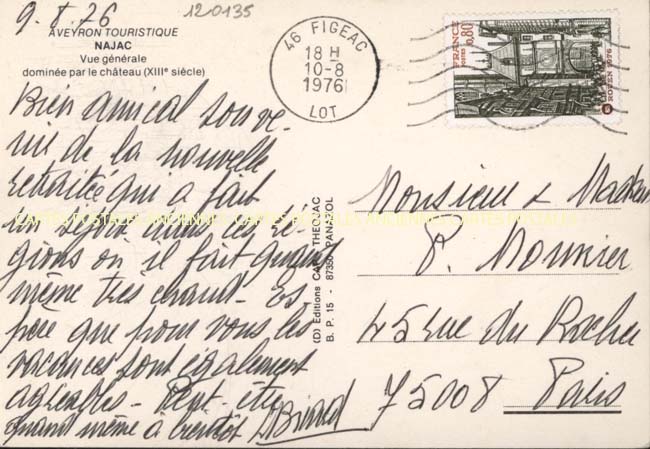 9.8.76
120135
AVEYRON TOURISTIQUE
NAJAC
Vue générale
dominée par le château (XIIIᵉ siècle)
Bien amical souve-
nir de la nouvelle
retraitée qui a fait
un séjour dans ces ré-
gions où il fait quand
même très chaud - Es-
père que pour vous les
vacances sont également
agréables - Peut-être
quand même à bientôt
46 FIGEAC
18 H
10-8
1976
LOT
FRANCE
POSTES 0,80
ROUEN 1976
(D) Editions CAP-THEOJAC
B. P. 15 - 87350 PANAZOL
Monsieur & Madame
P. Mounier
45 rue du Rocher
75008 Paris